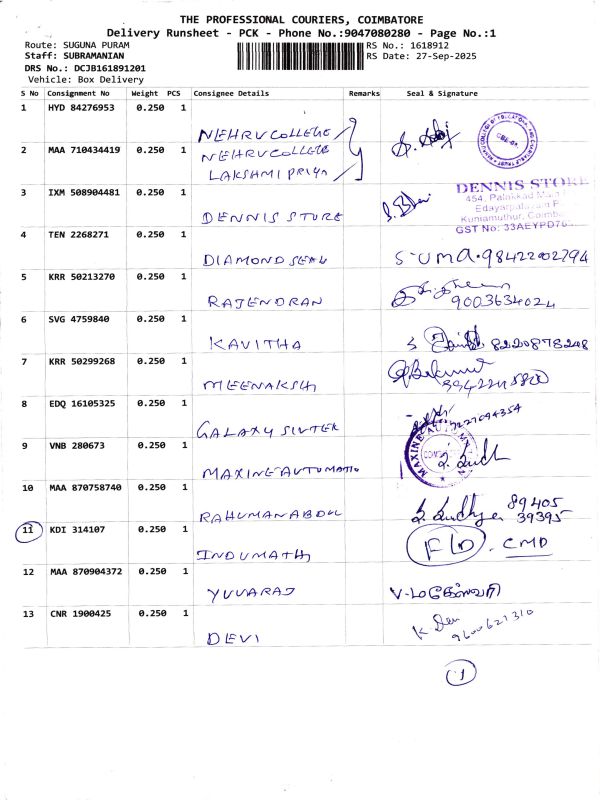 THE PROFESSIONAL COURIERS, COIMBATORE
Delivery Runsheet - PCK - Phone No.:9047080280 - Page No.:1
Route: SUGUNA PURAM
RS No.: 1618912
Staff: SUBRAMANIAN
RS Date: 27-Sep-2025
DRS No.: DCJB161891201
Vehicle: Box Delivery
S No Consignment No Weight PCS Consignee Details Remarks Seal & Signature
1 HYD 84276953 0.250 1 NEHRU COLLEGE
2 MAA 710434419 0.250 1 NEHRU COLLEGE
LAKSHMI PRIYA
3 IXM 508904481 0.250 1 DENNIS STORE
DENNIS STORE
454, Palakkad Main
Edayarpalayam P
Kuniamuthur, Coimb
GST No: 33AEYPD76
4 TEN 2268271 0.250 1 DIAMOND SEAL SUMA. 9842202794
5 KRR 50213270 0.250 1 RAJENDRAN
9003634024
6 SVG 4759840 0.250 1 KAVITHA 8220878248
7 KRR 50299268 0.250 1 MEENAKSHI
8 EDQ 16105325 0.250 1 GALAXY SINTER
9 VNB 280673 0.250 1 MAXINE AUTOMATIO
10 MAA 870758740 0.250 1 RAHUMAN ABDUL 89405
39395
11 KDI 314107 0.250 1 INDUMATHI F/D. CMD
12 MAA 870904372 0.250 1 YUVARAJ V-மகேஸ்வரி
13 CNR 1900425 0.250 1 DEVI K Devi
9600621310
1